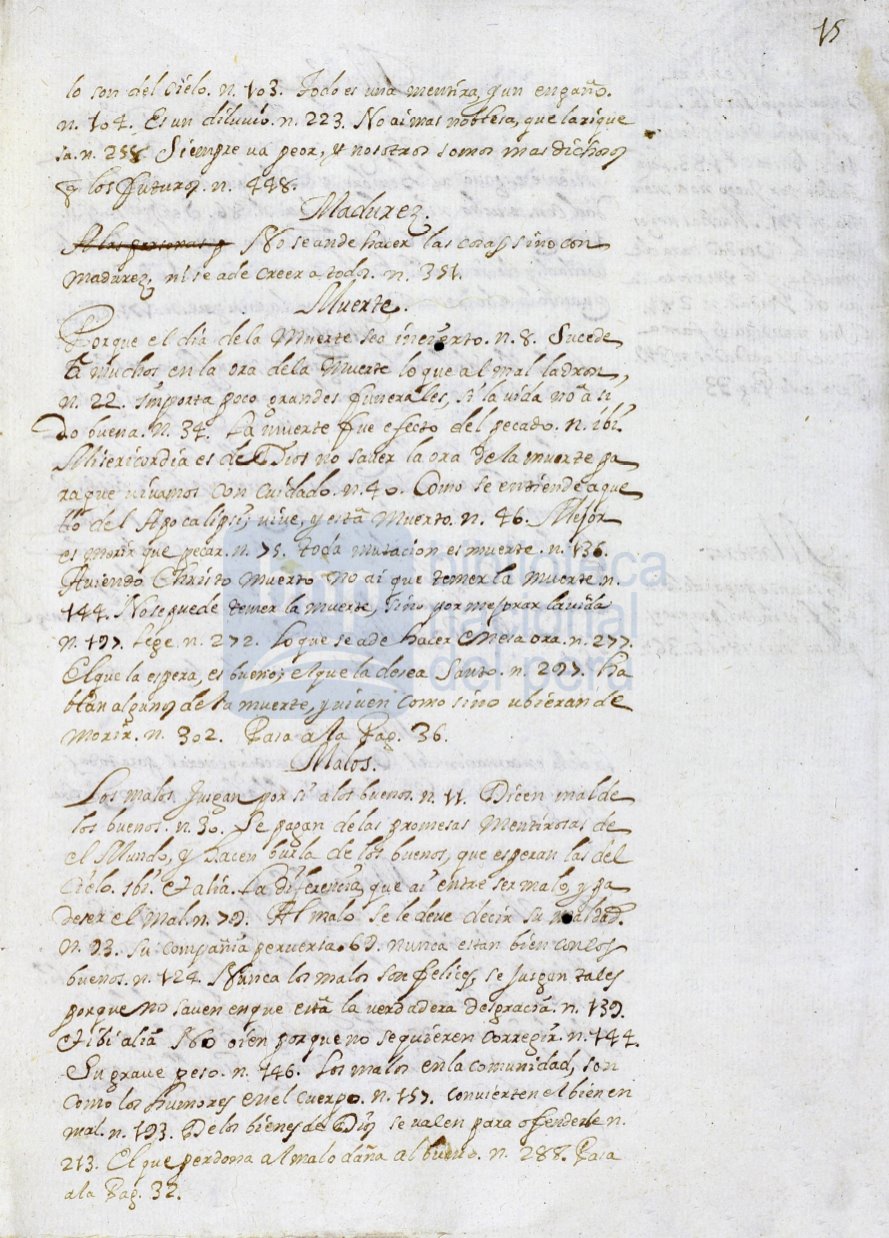 15
lo son del cielo. n. 103. Todo es una mentira, y un engaño.
n. 104. Es un diluvio. n. 223. No ai mas noblesa, que la rique
sa. n. 258. Siempre va peor, y nosotros somos mas dichosos
q los futuros. n. 448.
Madurez.
A las personas p No se ande hacer las cosas, sino con
madurez, ni se a de creer a todos. n. 351.
Muerte.
Porque el dia dela Muerte sea incierto. n. 8. Sucede
a muchos en la ora dela Muerte lo que al mal ladron,
n. 22. importa poco grandes funerales, si la vida no a si
do buena. n. 34. La muerte fue efecto del pecado. n. ibi.
Misericordia es de Dios no saver la ora de la muerte pa
ra que vivamos con cuidado. n. 40. Como se entiende aque
llo del Apocalipsi; vive, y está Muerto. n. 46. Mejor
es morir que pecar. n. 75. toda mutacion es muerte. n. 136.
Aviendo Christo muerto no ai que temer la muerte n.
144. No se puede temer la muerte, sino por mesprar la vida
n. 197. Lege. n. 272. Lo que se a de hacer en esa ora. n. 277.
El que la espera, es bueno; el que la desea Santo. n. 297. Ha
blan algunos de la muerte, y viven como si no ubieran de
morir. n. 302. Pasa a la Pag. 36.
Malos.
Los malos Jusgan por si a los buenos. n. 11. Dicen mal de
los buenos. n. 30. Se pagan de las promesas Mentirosas de
el Mundo, y hacen burla de los buenos, que esperan las del
Cielo. ibi. et alia. La diferencia, que ai entre ser malo, y pa
deser el mal. n. 79. Al malo se le deve decir su maldad.
n. 93. su compañia perversa. 69. nunca estan bien con los
buenos. n. 124. Nunca los malos son felices, se Jusgan tales
porque no saven en que está la verdadera desgracia. n. 139.
et ibi alia No oien porque no se quieren corregir. n. 144.
Su grave peso. n. 146. Los malos en la comunidad, son
como los humores en el cuerpo. n. 157. convierten el bien en
mal. n. 193. De los bienes de Dios se valen para ofenderle n.
213. El que perdona al malo daña al bueno. n. 288. Pasa
a la Pag. 32.
biblioteca
nacional
del perú